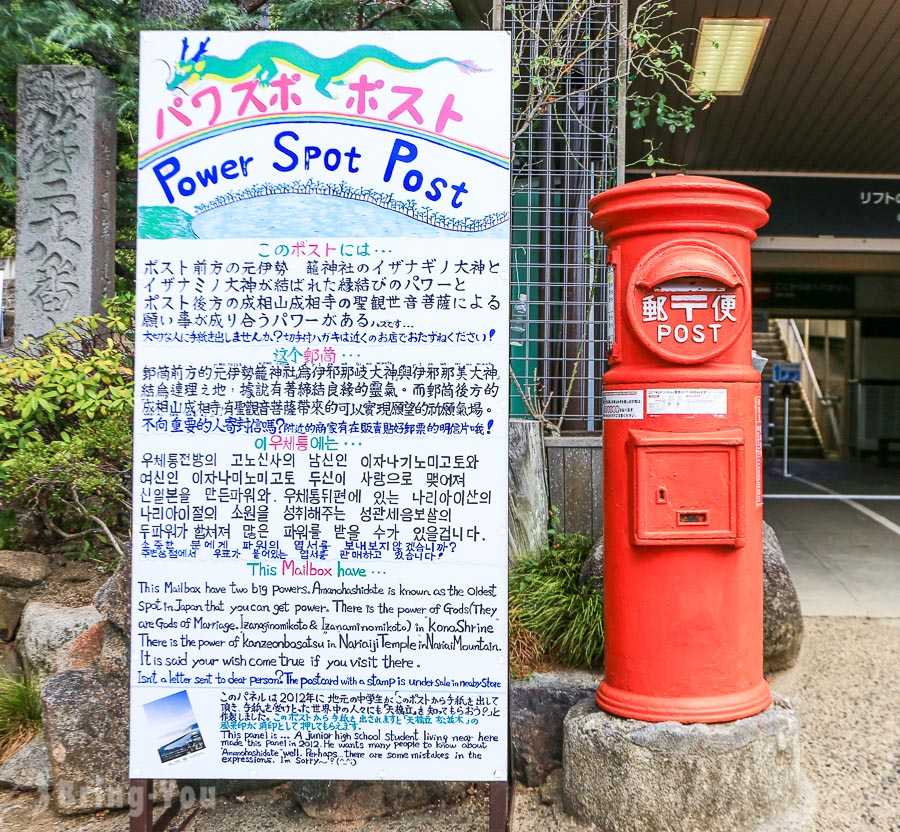 パワースポットポスト
Power Spot Post
このポストには…
ポスト前方の元伊勢 籠神社のイザナギノ大神と
イザナミノ大神が結ばれた縁結びのパワーと
ポスト後方の成相山成相寺の聖観世音菩薩による
願い事が成り合うパワーがあるハズです…
大切な人に手紙を出しませんか?切手付ハガキは近くのお店でおたずねください!
这个郵筒…
郵筒前方的元伊勢籠神社為伊邪那岐大神與伊邪那美大神
結為連理之地,據說有著締結良緣的靈氣。而郵筒後方的
成相山成相寺有聖觀音菩薩帶來的可以實現願望的祈願氣場。
不向重要的人寄封信嗎?附近的商家有在販賣貼好郵票的明信片哦!
이우체통에는…
우체통전방의 고노신사의 남신인 이자나기노미고토와
여신인 이자나미노미고토 두신이 사랑으로 맺어져
신일본을 만든파워와. 우체통뒤편에 있는 나리아이산의
나리아이절의 소원을 성취해주는 성관세음보살의
두파워가 합쳐져 많은 파워를 받을 수가 있을겁니다.
소중한 분에게 파워의 엽서를 보내보지않겠습니까?
주변상점에서 우표가 붙어있는 엽서를 판매하고 있습니다!
This Mailbox have…
This Mailbox have two big powers. Amanohashidate is known as the oldest
spot in Japan that you can get power. There is the power of Gods(They
are Gods of Marriage. Izanaginomikoto & Izanaminomikoto) in "Kono Shrine"
There is the power of "Kanzeonbosatsu" in Nariaiji Temple in Nariai Mountain.
It is said your wish come true if you visit there.
Isn't a letter sent to dear person? The postcard with a stamp is under sale in nearby Store
このパネルは2012年に地元の中学生が「このポストから手紙を出して
頂き、手紙を受けとった世界中の人々にも『天橋立』を知ってもらおう?」と
作製しました。このポストから手紙を出されますと「天橋立 松並木」の
風景印が消印として押してもらえます。
This panel is… A junior high school student living near here
made this panel in 2012. He wants many people to know about
"Amanohashidate" well. Perhaps… there are some mistakes in the
expressions. I'm sorry~"? (^^;)
郵〒便
POST
リフト
Bring-You